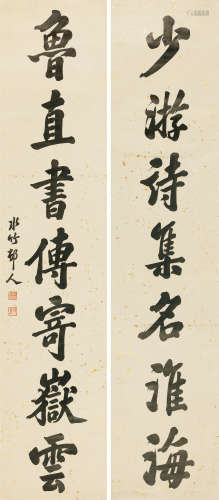 少游詩集名淮海
魯直書傳寄嶽雲
水竹邨人